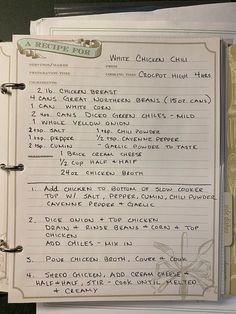 A RECIPE FOR
WHITE CHICKEN CHILI
SERVINGS/MAKES
FROM
PREPARATION TIME
COOKING TIME CROCPOT HIGH 4HRS
2 lb. CHICKEN BREAST
4 CANS GREAT NORTHERN BEANS (15oz. CANS)
1 CAN WHITE CORN
2 4oz. CANS DICED GREEN CHILES - MILD
1 WHOLE YELLOW ONION
2 tsp. SALT 1 tsp. CHILI POWDER
1 tsp. PEPPER 1/2 tsp. CAYENNE PEPPER
2 tsp. CUMIN ~ GARLIC POWDER TO TASTE
1 BRICK CREAM CHEESE
1/2 CUP HALF & HALF
24oz CHICKEN BROTH
1. ADD CHICKEN TO BOTTOM OF SLOW COOKER
TOP W/ SALT, PEPPER, CUMIN, CHILI POWDER
CAYENNE PEPPER & GARLIC
2. DICE ONION & TOP CHICKEN
DRAIN & RINSE BEANS & CORN & TOP
CHICKEN
ADD CHILES - MIX IN
3. POUR CHICKEN BROTH, COVER & COOK
4. SHRED CHICKEN, ADD CREAM CHEESE &
HALF & HALF, STIR - COOK UNTIL MELTED
& CREAMY